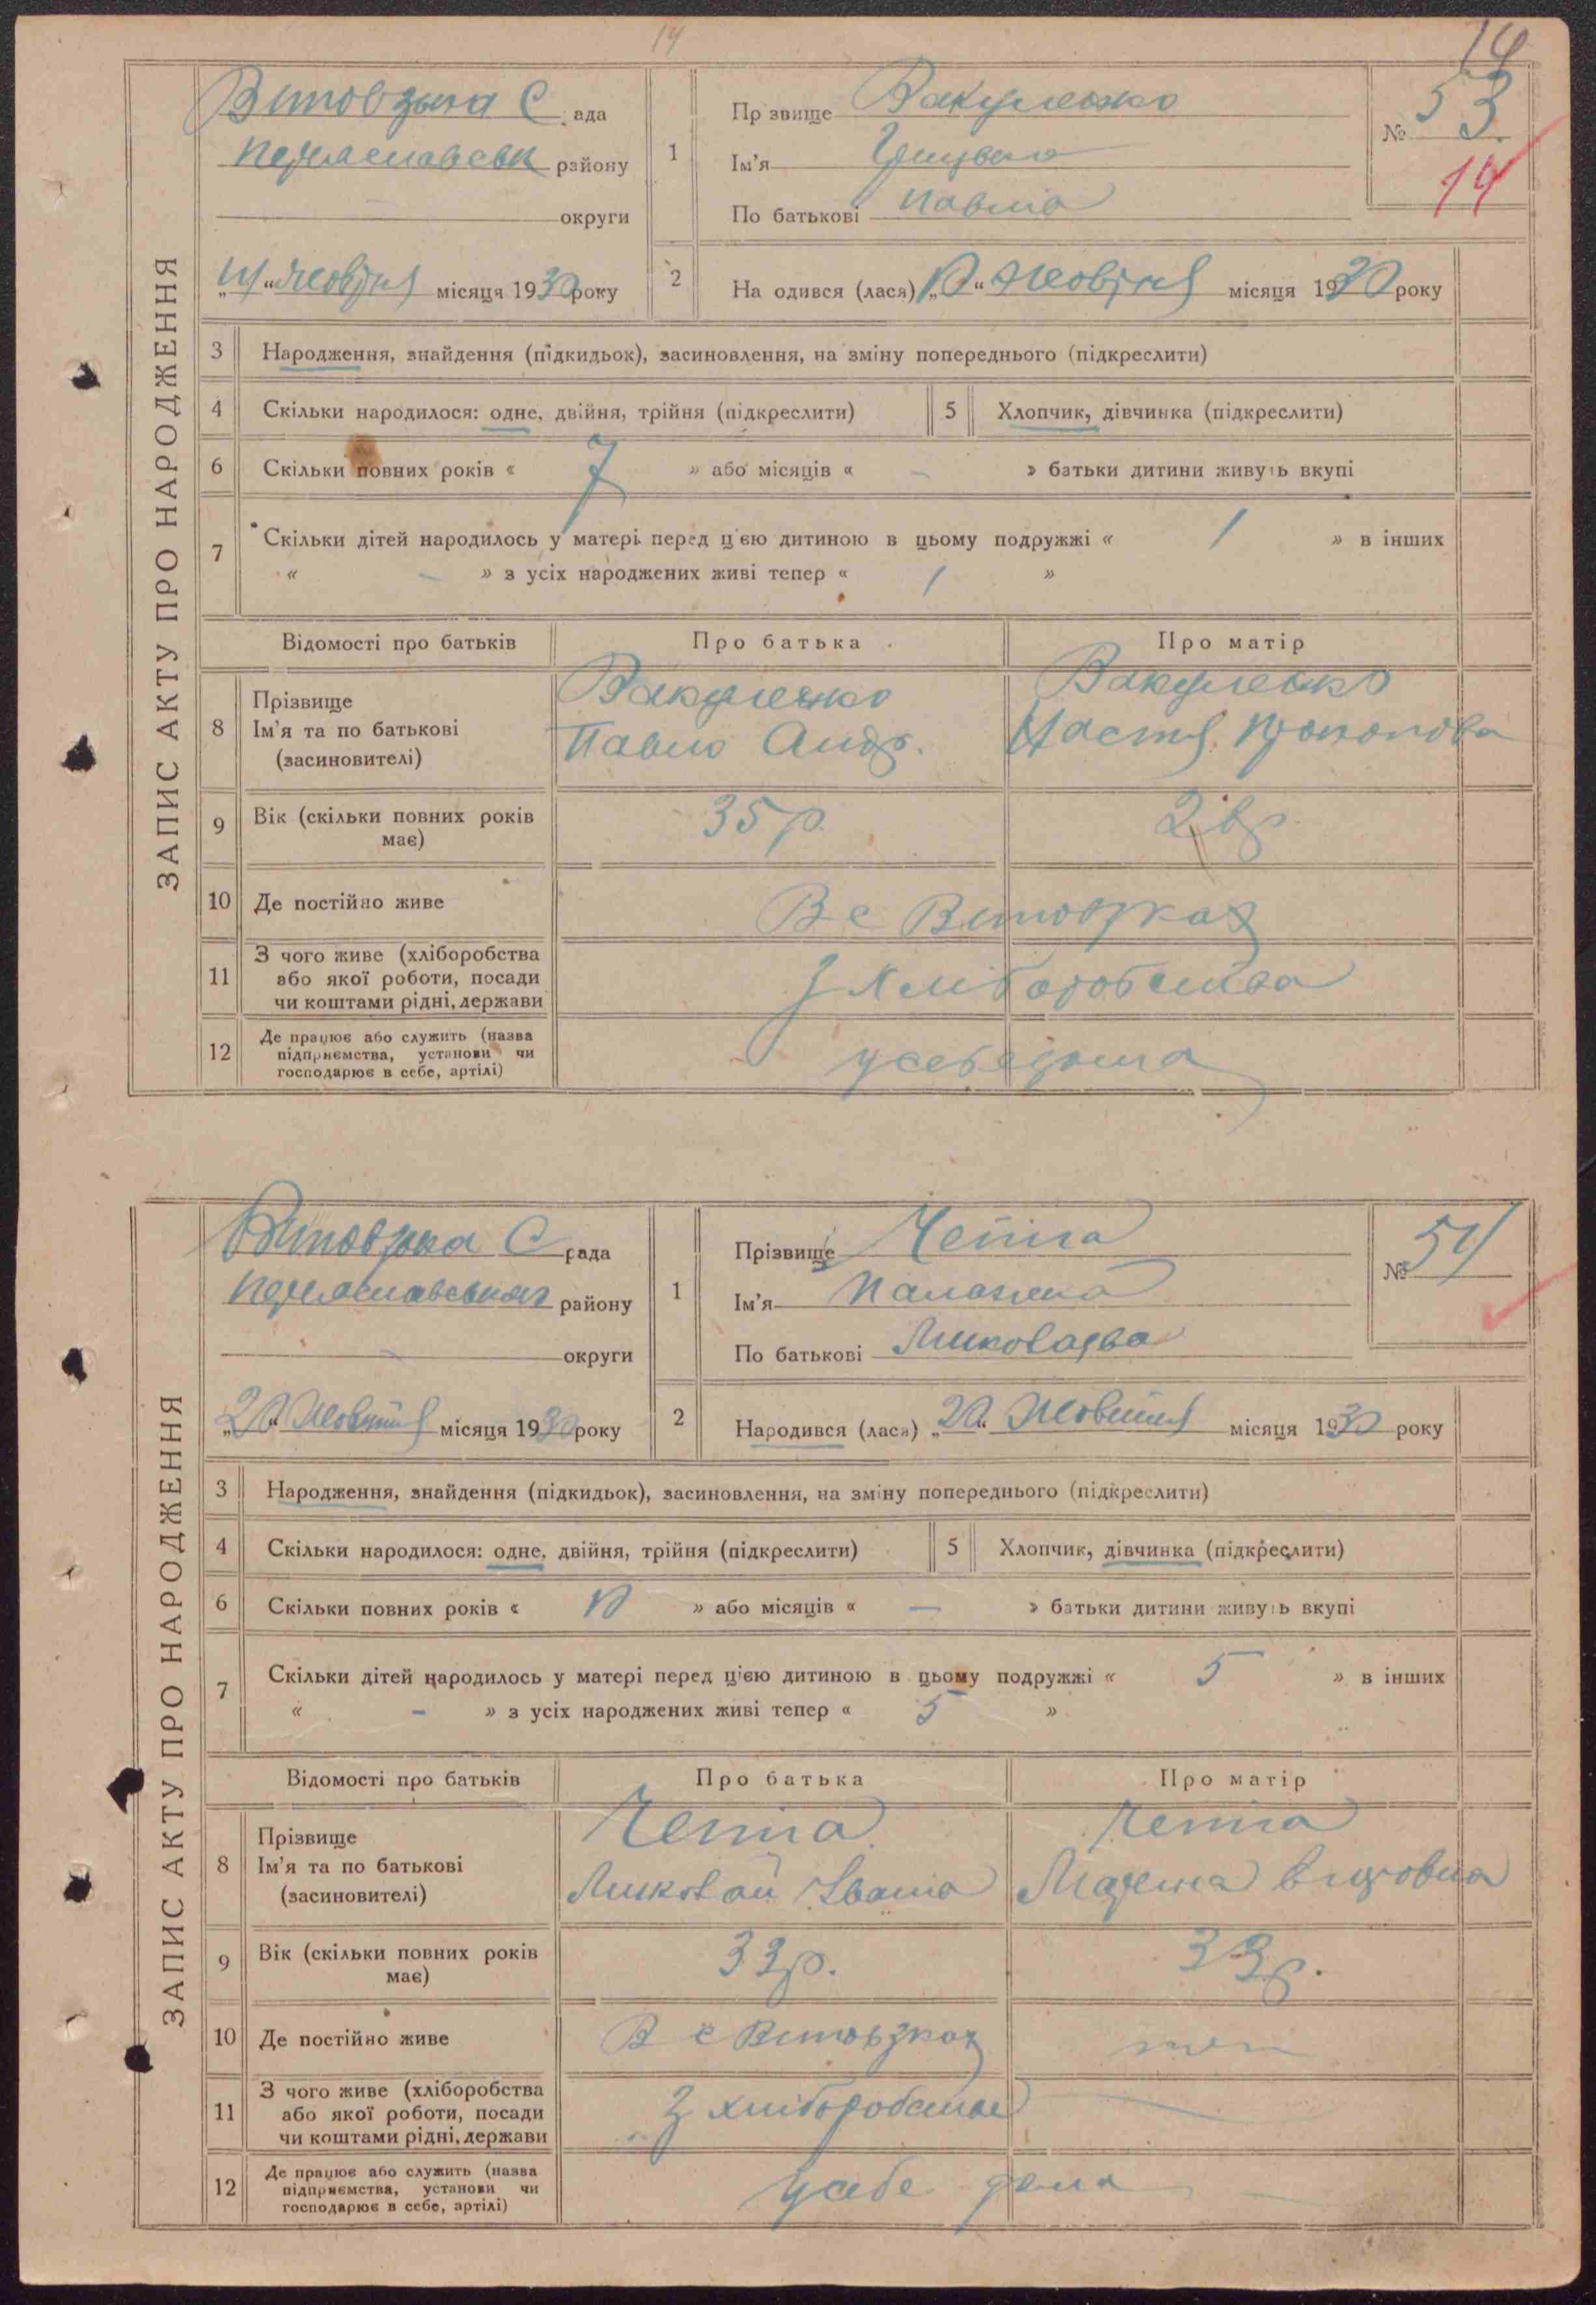 14
14
ЗАПИС АКТУ ПРО НАРОДЖЕННЯ
С ада
району
округи
місяця 1930 року
1
Пр звище Вакуленко
Ім'я
По батькові Павло
№ 53
14
2
На одився (лася) жовтня місяця 1930 року
3 Народження, знайдення (підкидьок), засиновлення, на зміну попереднього (підкреслити)
4 Скільки народилося: одне, двійня, трійня (підкреслити)
5 Хлопчик, дівчинка (підкреслити)
6 Скільки повних років « 7 » або місяців « – » батьки дитини живуть вкупі
7 Скільки дітей народилось у матері перед цією дитиною в цьому подружжі « 1 » в інших
« – » з усіх народжених живі тепер « 1 »
Відомості про батьків Про батька Про матір
8 Прізвище
Ім'я та по батькові
(засиновителі)
Вакуленко
Павло Андр.
Вакуленко
Настя
9 Вік (скільки повних років
має)
35 р.
10 Де постійно живе
В с Витовзках
11 З чого живе (хліборобства
або якої роботи, посади
чи коштами рідні, держави
З хліборобства
12 Де працює або служить (назва
підприємства, установи чи
господарює в себе, артілі)
у себе дома
ЗАПИС АКТУ ПРО НАРОДЖЕННЯ
С рада
району
округи
20 жовтня місяця 1930 року
1
Прізвище Чепіга
Ім'я
По батькові
№ 54
2
Народився (лася) „20“ жовтня місяця 1930 року
3 Народження, знайдення (підкидьок), засиновлення, на зміну попереднього (підкреслити)
4 Скільки народилося: одне, двійня, трійня (підкреслити)
5 Хлопчик, дівчинка (підкреслити)
6 Скільки повних років « » або місяців « – » батьки дитини живуть вкупі
7 Скільки дітей народилось у матері перед цією дитиною в цьому подружжі « 5 » в інших
« – » з усіх народжених живі тепер « 5 »
Відомості про батьків Про батька Про матір
8 Прізвище
Ім'я та по батькові
(засиновителі)
Чепіга
Миколай Івано
Чепіга
9 Вік (скільки повних років
має)
33 р.
33 р.
10 Де постійно живе
В с Витовзках
11 З чого живе (хліборобства
або якої роботи, посади
чи коштами рідні, держави
З хліборобства
12 Де працює або служить (назва
підприємства, установи чи
господарює в себе, артілі)
у себе дома